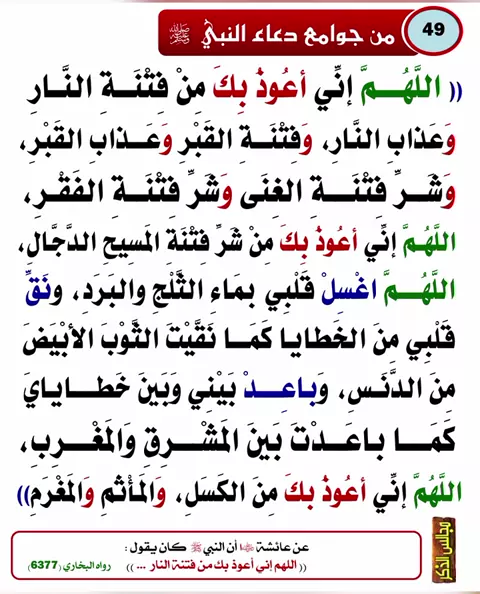 49
من جوامع دعاء النبي ﷺ
(( اللَّهُمَّ إِنِّي أعُوذُ بِكَ مِنْ فِتْنَةِ النَّارِ
وَعَذابِ النَّارِ، وَفِتْنَةِ القَبْرِ وعَذابِ القَبْرِ،
وَشَرِّ فِتْنَةِ الغِنَى وَشَرِّ فِتْنَةِ الفَقْرِ،
اللَّهُمَّ إِنِّي أعُوذُ بِكَ مِنْ شَرِّ فِتْنَةِ المَسِيحِ الدَّجَّالِ،
اللَّهُمَّ اغْسِلْ قَلْبِي بِمَاءِ الثَّلْجِ والبَرَدِ، ونَقِّ
قَلْبِي مِنَ الخَطايا كَمَا نَقَّيْتَ الثَّوْبَ الأبْيَضَ
مِنَ الدَّنَسِ، وَباعِدْ بَيْنِي وَبَيْنَ خَطايايَ
كَمَا باعَدْتَ بَيْنَ المَشْرِقِ وَالمَغْرِبِ،
اللَّهُمَّ إِنِّي أعُوذُ بكَ مِنَ الكَسَلِ، وَالمَأْثَمِ والمَغْرَمِ ))
مجالس الذكر
عن عائشة رضي الله عنها أن النبي ﷺ كان يقول :
(( اللهم إني أعوذ بك من فتنة النار ... )) رواه البخاري (6377)